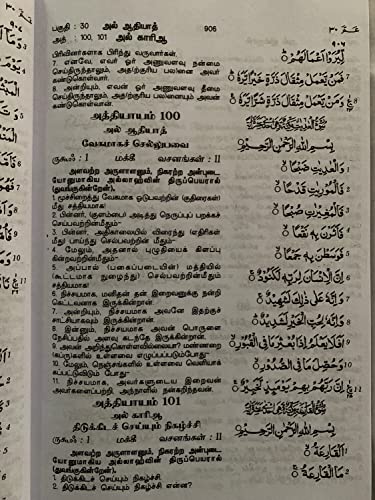 பகுதி : 30 அல் ஆதியாத்
அத் : 100, 101 அல் காரிஆ
906
عم ٣٠
பிரிவினர்களாக பிரிந்து வருவார்கள்.
7. எனவே, எவர் ஓர் அணுவளவு நன்மை
செய்திருந்தாலும், அத(ற்குரிய பல)னை அவர்
கண்டுகொள்வார்.
8. அன்றியும், எவன் ஓர் அணுவளவு தீமை
செய்திருந்தாலும், அத(ற்குரிய பல)னையும் அவன்
கண்டுகொள்வான்.
அத்தியாயம் 100
அல் ஆதியாத்
வேகமாகச் செல்லுபவை
ருகூஃ : 1 மக்கீ வசனங்கள் : 11
அளவற்ற அருளாளனும், நிகரற்ற அன்புடை
யோனுமாகிய அல்லாஹ்வின் திருப்பெயரால்
(துவங்குகிறேன்).
1. மூச்சிறைத்து வேகமாக ஓடுபவற்றின் (குதிரைகள்)
மீது சத்தியமாக!
2. பின்னர், (குளம்பை) அடித்து நெருப்புப் பறக்கச்
செய்பவற்றின்மீதும்-
3. பின்னர், அதிகாலையில் விரைந்து (எதிரிகள்
மீது) பாய்ந்து செல்பவற்றின் மீதும்-
4. மேலும், அதனால் புழுதியைக் கிளப்பு
கின்றவற்றின்மீதும்-
5. அப்பால் (பகைப்படையின்) மத்தியில்
(கூட்டமாக நுழைந்து) செல்பவற்றின்மீதும்
சத்தியமாக!
6. நிச்சயமாக, மனிதன் தன் இறைவனுக்கு நன்றி
கெட்டவனாக இருக்கின்றான்.
7. அன்றியும், நிச்சயமாக அவனே இதற்குச்
சாட்சியாகவும் இருக்கின்றான்.
8. இன்னும், நிச்சயமாக அவன் பொருளை
நேசிப்பதில் அளவு கடந்தே இருக்கின்றான்.
9. அவன் அறிந்துகொள்ளவில்லையா? மண்ணறை
(கப்ரு)களில் உள்ளவை எழுப்பப்படும்போது-
10. மேலும், நெஞ்சங்களில் உள்ளவை வெளியாக்
கப்படும்போது
11. நிச்சயமாக, அவர்களுடைய இறைவன்
அவர்களைப்பற்றி, அந்நாளில் நன்கறிந்தவன்.
அத்தியாயம் 101
அல் காரிஆ
திடுக்கிடச் செய்யும் நிகழ்ச்சி
ருகூஃ : 1 மக்கீ வசனங்கள் : 11
அளவற்ற அருளாளனும், நிகரற்ற அன்புடை
யோனுமாகிய அல்லாஹ்வின் திருப்பெயரால்
(துவங்குகிறேன்).
1. திடுக்கிடச் செய்யும் நிகழ்ச்சி
2. திடுக்கிடச் செய்யும் நிகழ்ச்சி என்ன?
لِّيُرَوْا أَعْمَالَهُمْ
فَمَن يَعْمَلْ مِثْقَالَ ذَرَّةٍ خَيْرًا يَّرَهُ
وَمَن يَعْمَلْ مِثْقَالَ ذَرَّةٍ شَرًّا يَّرَهُ
بِسْمِ اللهِ الرَّحْمٰنِ الرَّحِيْمِ
وَالْعٰدِيٰتِ ضَبْحًا
فَالْمُوْرِيٰتِ قَدْحًا
فَالْمُغِيْرٰتِ صُبْحًا
فَأَثَرْنَ بِهٖ نَقْعًا
فَوَسَطْنَ بِهٖ جَمْعًا
إِنَّ الْإِنْسَانَ لِرَبِّهٖ لَكَنُوْدٌ
وَإِنَّهٗ عَلٰى ذٰلِكَ لَشَهِيْدٌ
وَإِنَّهٗ لِحُبِّ الْخَيْرِ لَشَدِيْدٌ
أَفَلَا يَعْلَمُ إِذَا بُعْثِرَ مَا فِي الْقُبُوْرِ
وَحُصِّلَ مَا فِي الصُّدُوْرِ
إِنَّ رَبَّهُمْ بِهِمْ يَوْمَئِذٍ لَّخَبِيْرٌ
بِسْمِ اللهِ الرَّحْمٰنِ الرَّحِيْمِ
اَلْقَارِعَةُ
مَا الْقَارِعَةُ